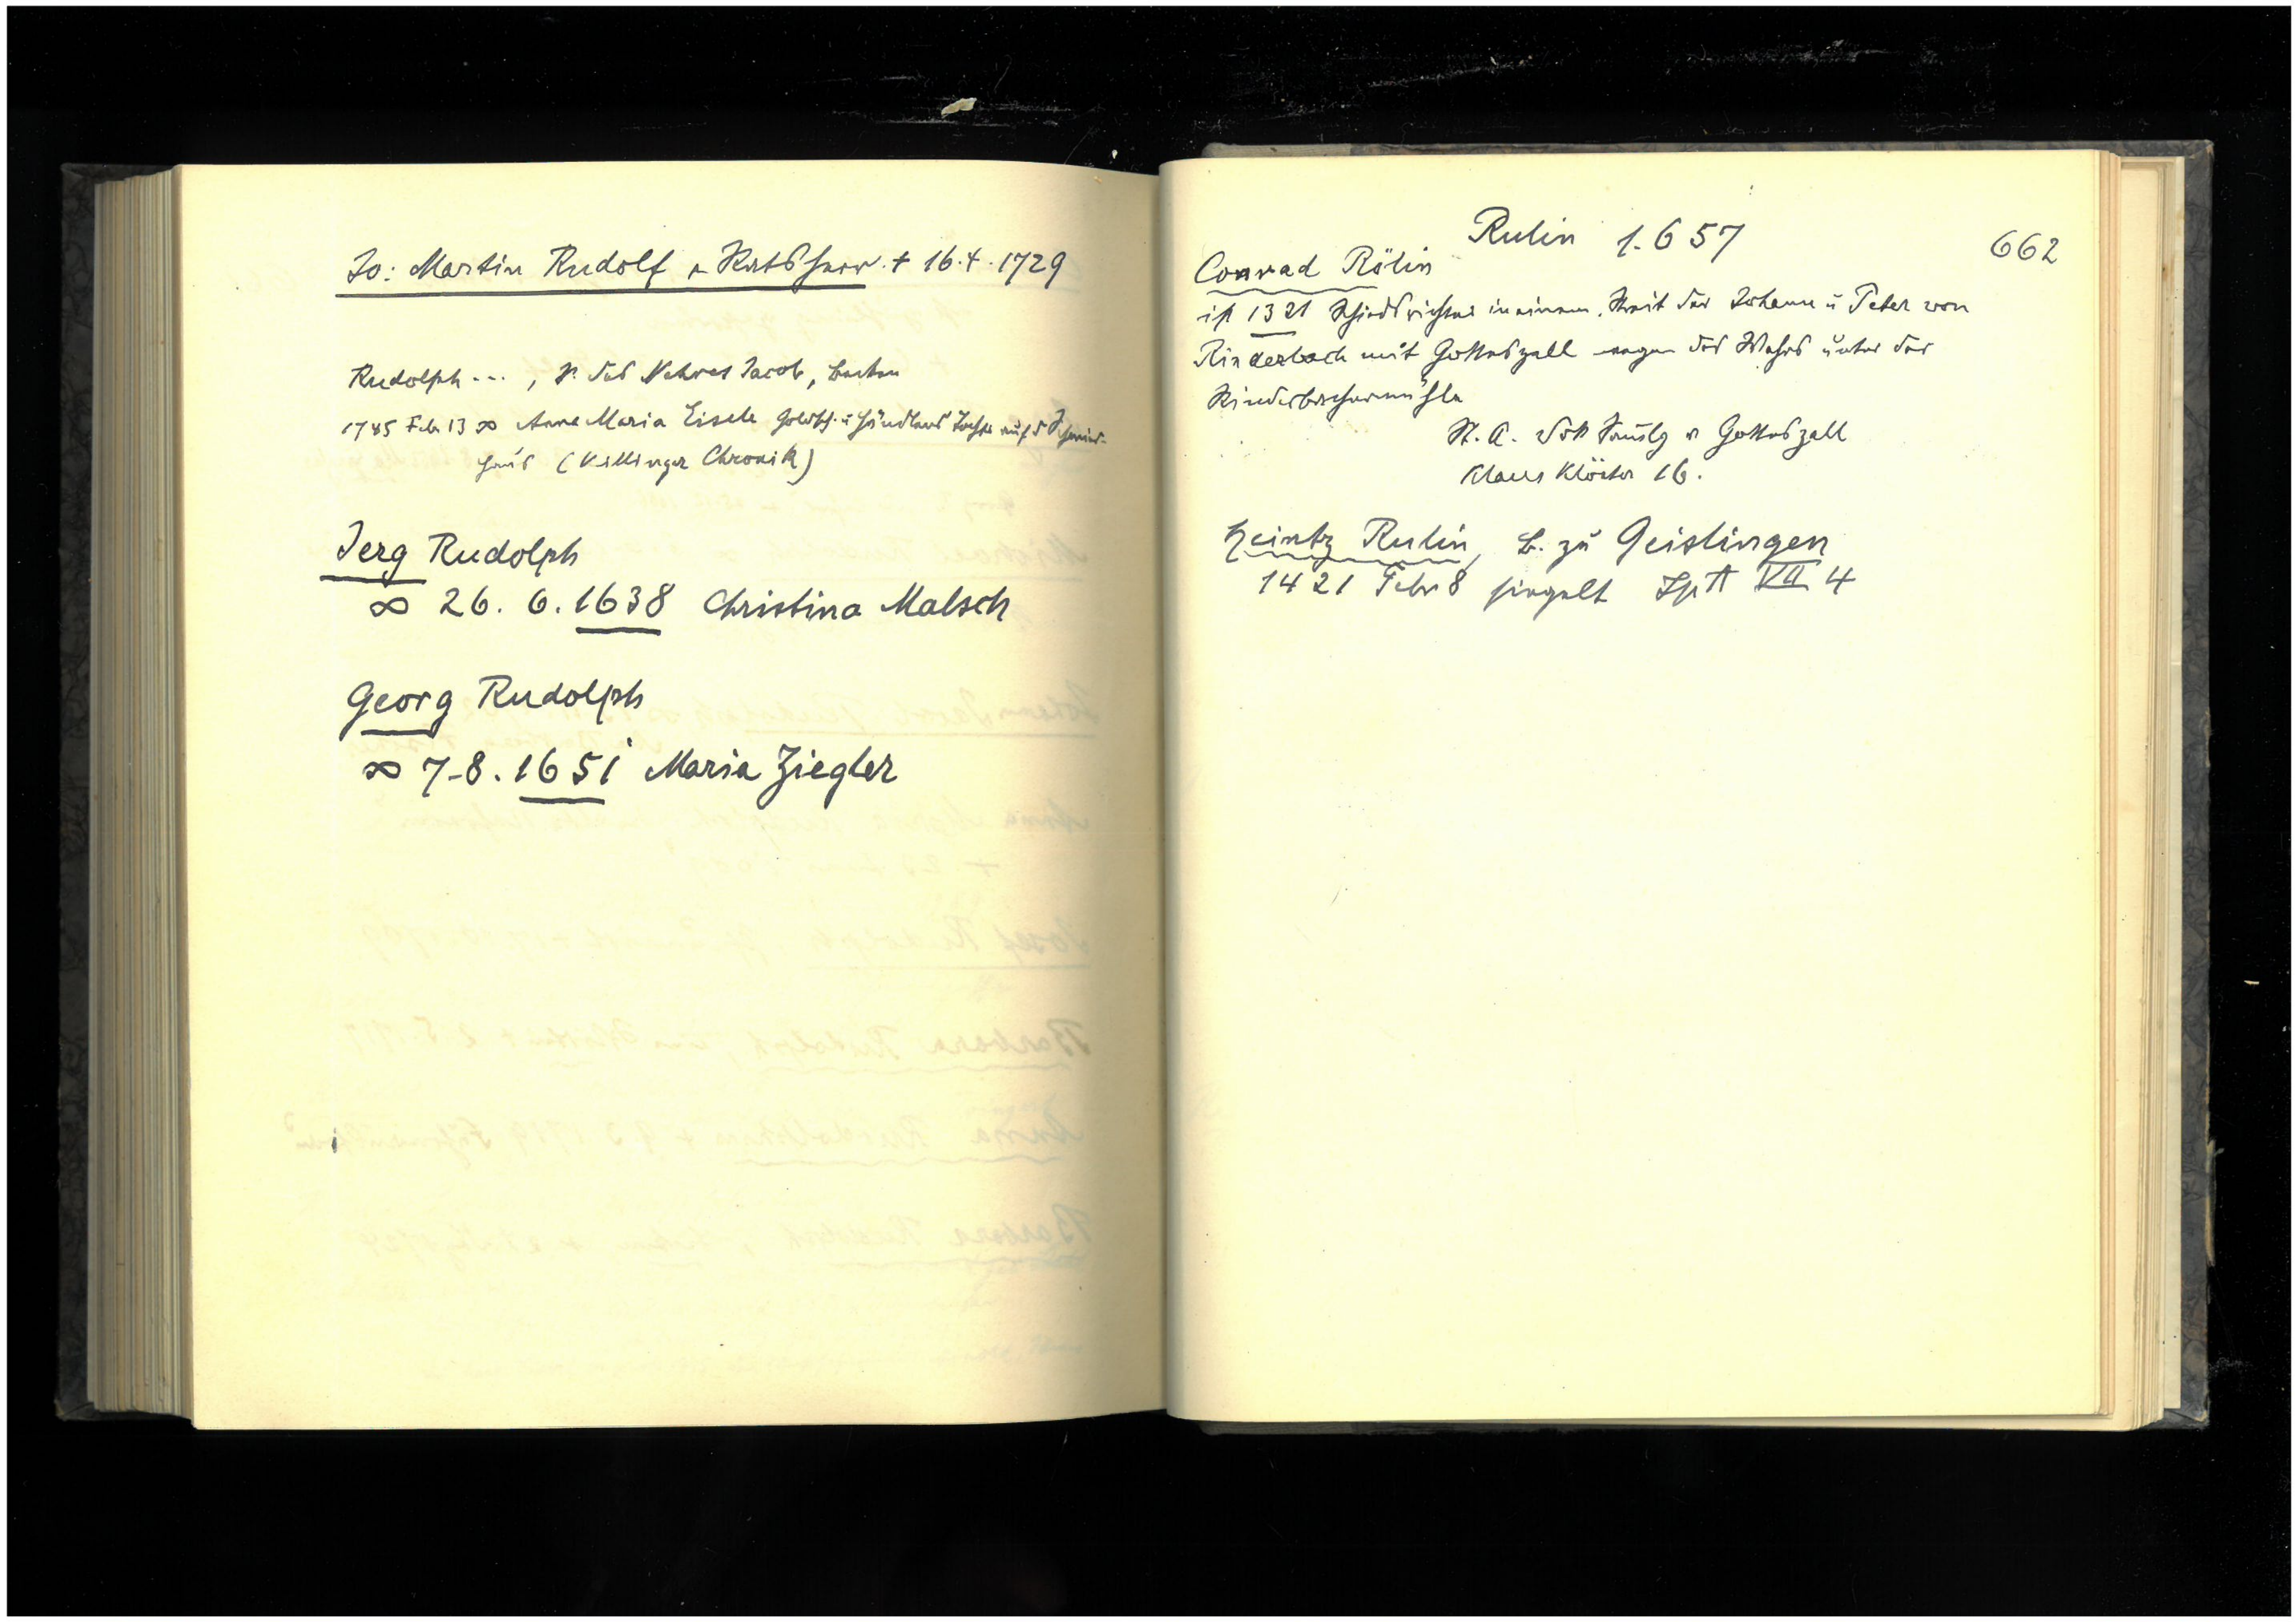 Jo: Martin Rudolf Ratsherr + 16.4.1729
Rudolph ..., S. des Jacob,
1785 Feb 13 ∞ Anna Maria Eisele Goldsch. u Händlers Tochter auf d
haus (Killinger Chronik)
Jerg Rudolph
∞ 26. 6. 1638 Christina Malsch
Georg Rudolph
∞ 7.8.1651 Maria Ziegler
Rulin 1.657
662
Conrad Rölin
ist 1321 Schiedsrichter in einem Streit der Johann u Peter von
Rinderbach mit Gotteszell wegen des Wehrs unter der
Rinderbachermühle
St. A. Gotteszell
Klöster 16.
Heintz Rulin, B. zu Geislingen
1421 Febr 8 siegelt SpA VII 4